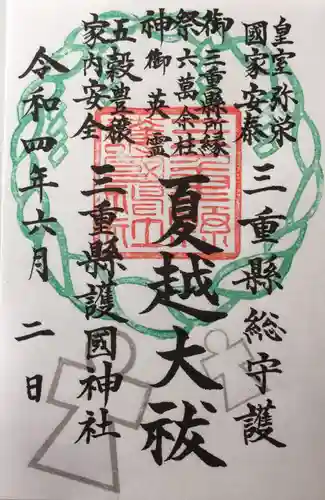 皇室弥栄
國家安泰
三重縣総守護
御三重縣所縁
祭六萬余柱
神御英霊
夏越大祓
五穀豊穣
家内安全
三重縣護國神社
令和四年六月二日